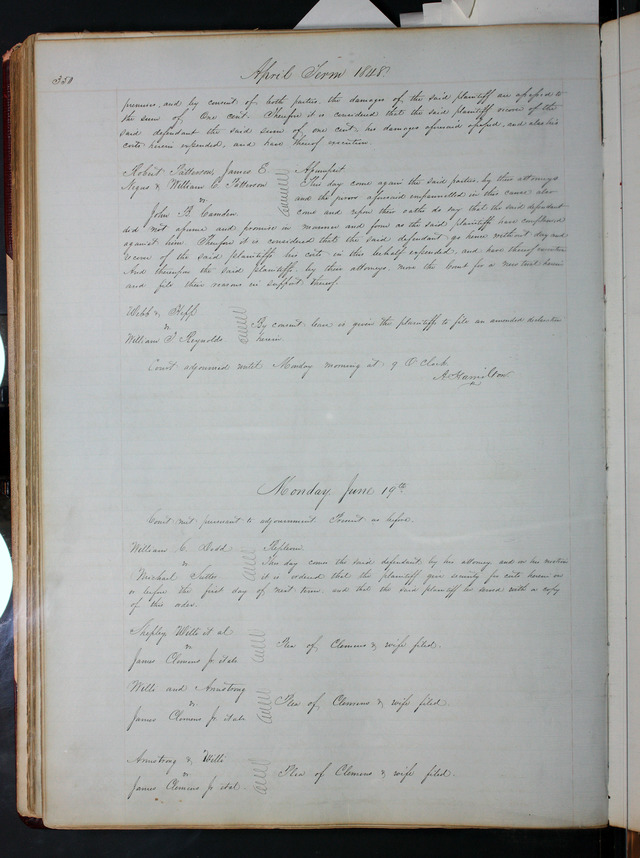 350
April Term 1848.
premises, and by consent of both parties the damages of the said plaintiff are assessed to
the sum of One cent. Therefore it is considered that the said plaintiff recover of the
said defendant the said sum of one cent his damages aforesaid assessed, and also his
costs herein expended, and have thereof execution.
Robert Patterson, James E.
Negus & William C. Patterson
vs
John B. Camden
Assumpsit
This day come again the said parties by their attorneys
and the jurors aforesaid empannelled in this cause also
come and upon their oaths do say that the said defendant
did not assume and promise in manner and form as the said plaintiffs have complained
against him. Therefore it is considered that the said defendant go hence without day and
recover of the said plaintiffs his costs in this behalf expended, and have thereof execution
And thereupon the said plaintiffs by their attorneys, move the Court for a new trial herein
and file their reasons in support thereof.
Webb &
vs
William S. Reynolds
By consent leave is given the plaintiffs to file an amended declaration
herein
Court adjourned until Monday morning at 9 O'Clock
A. Hamilton
Monday June 19th
Court met pursuant to adjournment. Present as before.
William C. Dodd
vs
Michael
Replevin.
This day comes the said defendant by his attorney and on his motion
it is ordered that the plaintiff give security for costs herein on
or before the first day of next term, and that the said plaintiff be served with a copy
of this order.
Shepley, Wells et al
vs
James Clemens Jr. et als
Plea of Clemens & wife filed.
Wells and Armstrong
vs
James Clemens Jr. et als
Plea of Clemens & wife filed.
Armstrong & Wells
vs
James Clemens Jr. et al.
Plea of Clemens & wife filed.